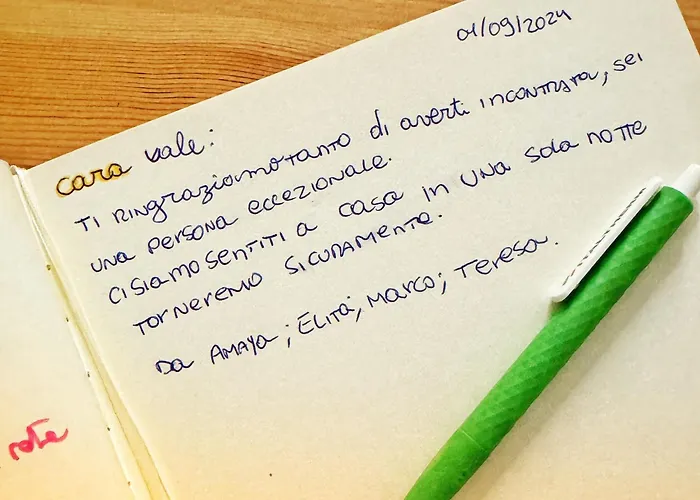 01/09/2024
cara vale:
Ti ringraziamo tanto di averti incontrata, sei
una persona eccezionale.
ci siamo sentiti a casa in una sola notte
torneremo sicuramente.
Da Amaya; Elita; Marco; Teresa.